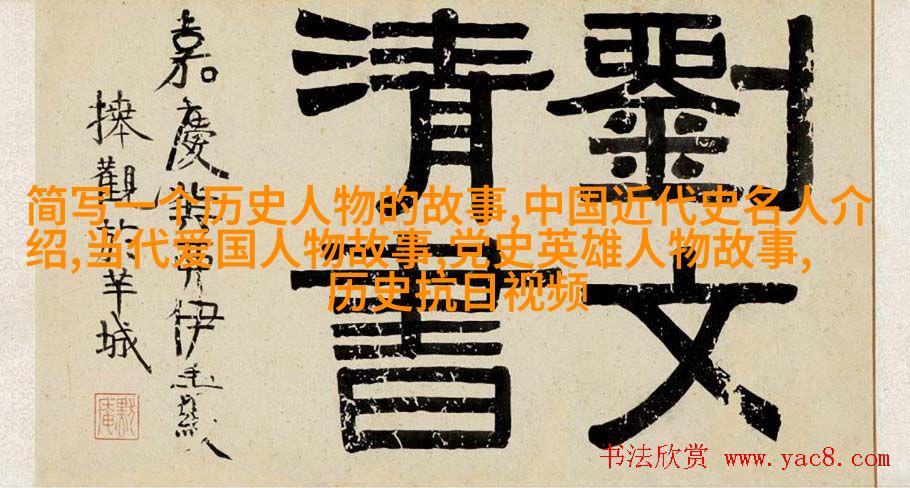 劉文
清書
嘉慶伊秉綬
捧觀於羊城
默庵
简写一个历史人物的故事,中国近代史名人介
绍,当代爱国人物故事,党史英雄人物故事,
历史抗日视频
书法欣赏 www.yac8.com